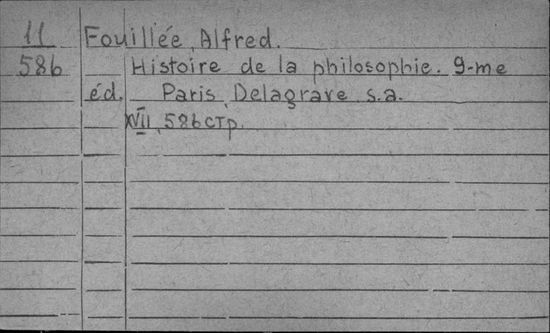 11 Fouillée, Alfred.
586 Histoire de la philosophie. 9-me
éd. Paris, Delagrave s.a.
XVII, 586 стр.